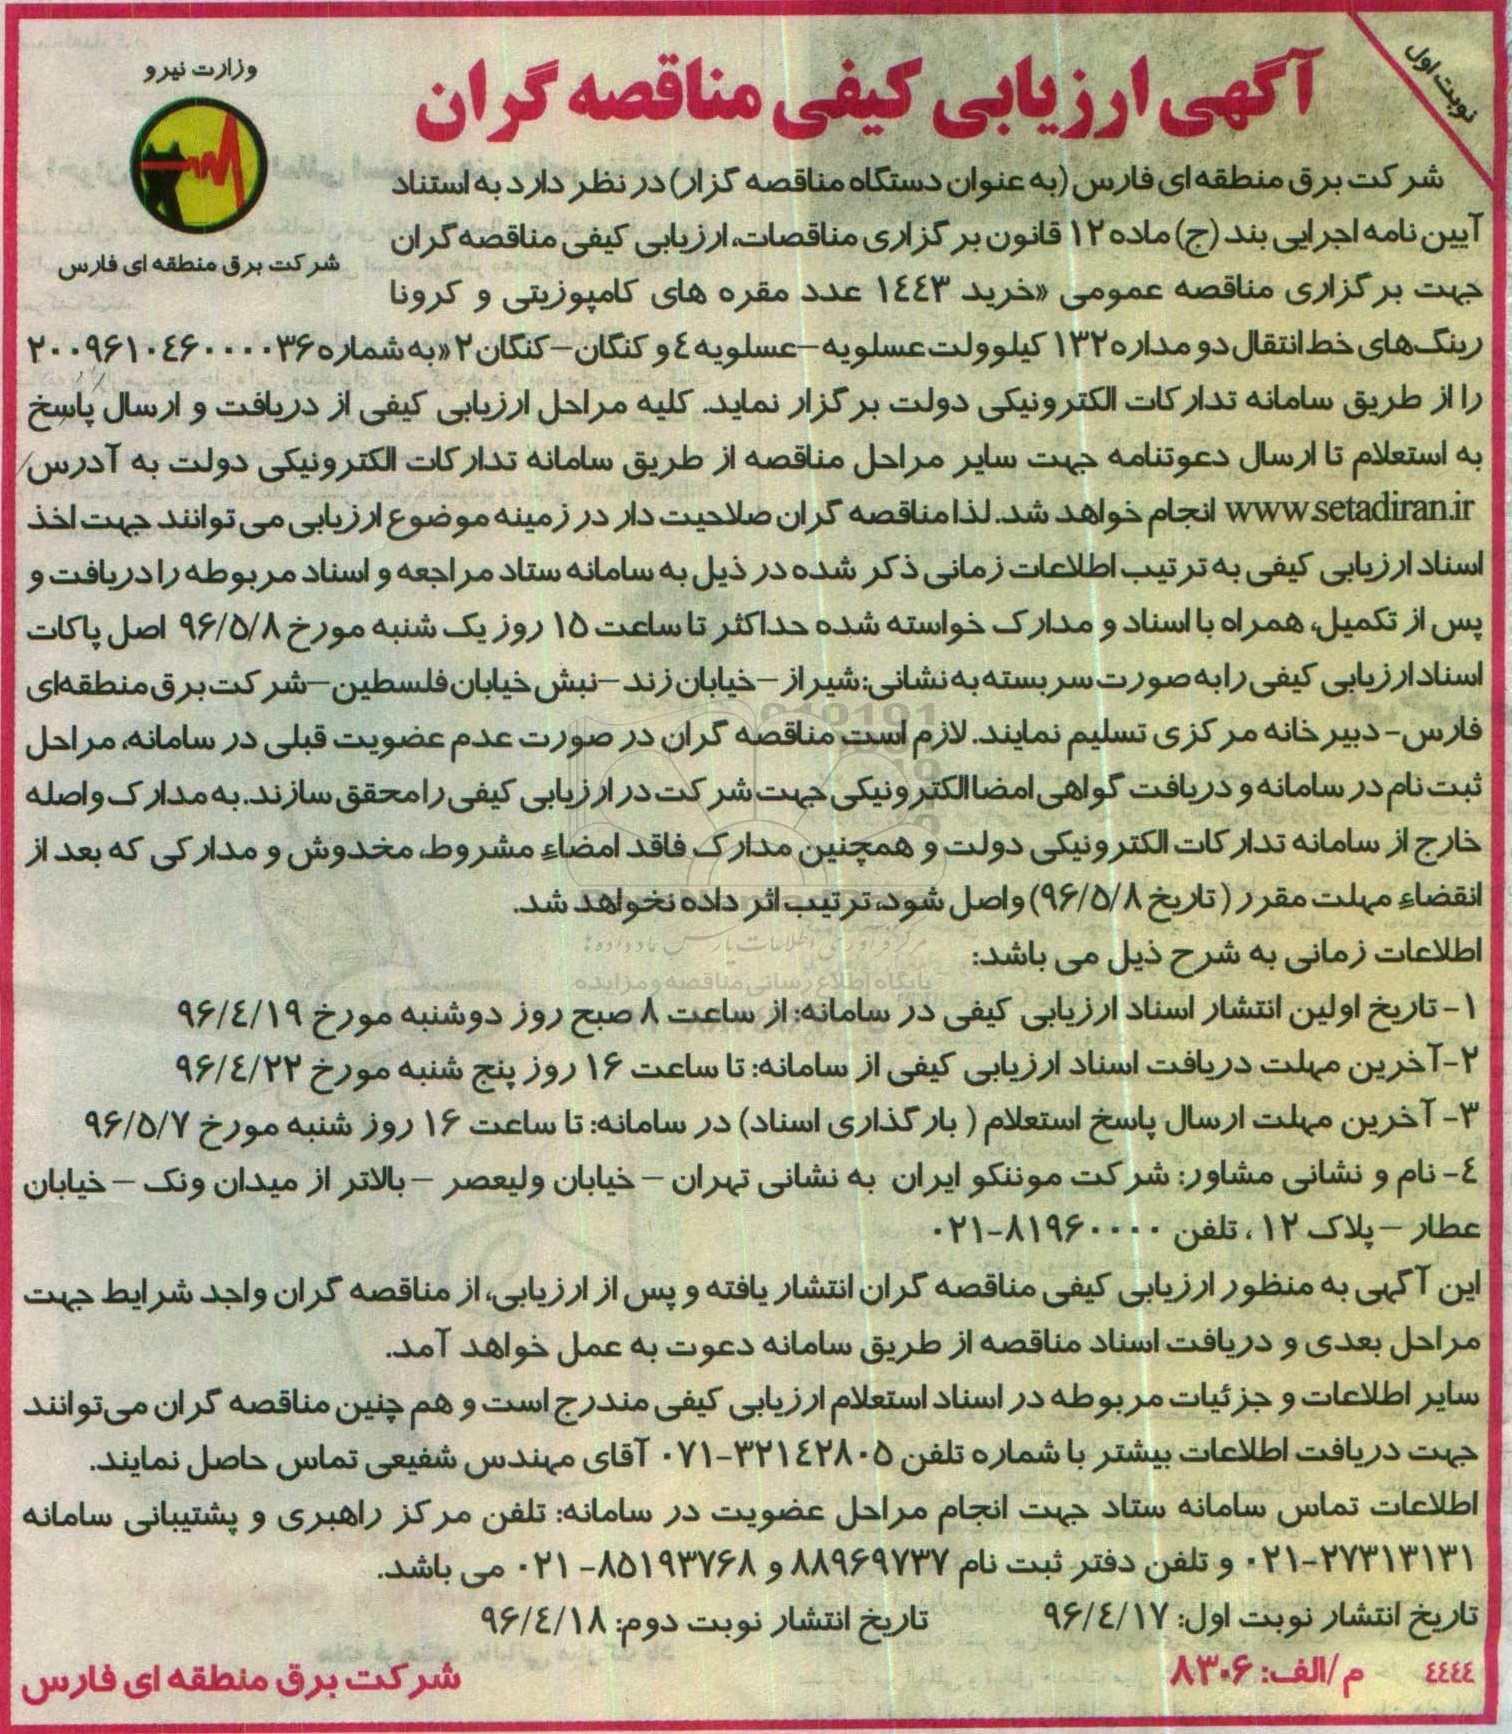 نوبت اول
آگهی ارزیابی کیفی مناقصه گران
وزارت نیرو
شرکت برق منطقه ای فارس
شرکت برق منطقه ای فارس (به عنوان دستگاه مناقصه گزار) در نظر دارد به استناد
آیین نامه اجرایی بند (ج) ماده ۱۲ قانون برگزاری مناقصات، ارزیابی کیفی مناقصه گران
جهت برگزاری مناقصه عمومی «خرید ۱۴۴۳ عدد مقره های کامپوزیتی و کرونا
رینگ‌های خط انتقال دو مداره ۱۳۲ کیلوولت عسلویه –عسلویه ۴ و کنگان–کنگان ۲ «به شماره ۲۰۰۹۶۱۰۴۶۰۰۰۰۳۶
را از طریق سامانه تدارکات الکترونیکی دولت برگزار نماید. کلیه مراحل ارزیابی کیفی از دریافت و ارسال پاسخ
به استعلام تا ارسال دعوتنامه جهت سایر مراحل مناقصه از طریق سامانه تدارکات الکترونیکی دولت به آدرس
www.setadiran.ir انجام خواهد شد. لذا مناقصه گران صلاحیت دار در زمینه موضوع ارزیابی می توانند جهت اخذ
اسناد ارزیابی کیفی به ترتیب اطلاعات زمانی ذکر شده در ذیل به سامانه ستاد مراجعه و اسناد مربوطه را دریافت و
پس از تکمیل، همراه با اسناد و مدارک خواسته شده حداکثر تا ساعت ۱۵ روز یک شنبه مورخ ۹۶/۵/۸ اصل پاکات
اسناد ارزیابی کیفی را به صورت سربسته به نشانی: شیراز –خیابان زند –نبش خیابان فلسطین–شرکت برق منطقه‌ای
فارس- دبیرخانه مرکزی تسلیم نمایند. لازم است مناقصه گران در صورت عدم عضویت قبلی در سامانه، مراحل
ثبت نام در سامانه و دریافت گواهی امضا الکترونیکی جهت شرکت در ارزیابی کیفی را محقق سازند. به مدارک واصله
خارج از سامانه تدارکات الکترونیکی دولت و همچنین مدارک فاقد امضاء مشروط، مخدوش و مدارکی که بعد از
انقضاء مهلت مقرر ( تاریخ ۹۶/۵/۸) واصل شود، ترتیب اثر داده نخواهد شد.
اطلاعات زمانی به شرح ذیل می باشد:
۱- تاریخ اولین انتشار اسناد ارزیابی کیفی در سامانه: از ساعت ۸ صبح روز دوشنبه مورخ ۹۶/۴/۱۹
۲-آخرین مهلت دریافت اسناد ارزیابی کیفی از سامانه: تا ساعت ۱۶ روز پنج شنبه مورخ ۹۶/۴/۲۲
۳- آخرین مهلت ارسال پاسخ استعلام ( بارگذاری اسناد) در سامانه: تا ساعت ۱۶ روز شنبه مورخ ۹۶/۵/۷
۴- نام و نشانی مشاور: شرکت موننکو ایران به نشانی تهران – خیابان ولیعصر –بالاتر از میدان ونک – خیابان
عطار – پلاک ۱۲ ، تلفن ۸۱۹۶۰۰۰۰-۰۲۱
این آگهی به منظور ارزیابی کیفی مناقصه گران انتشار یافته و پس از ارزیابی، از مناقصه گران واجد شرایط جهت
مراحل بعدی و دریافت اسناد مناقصه از طریق سامانه دعوت به عمل خواهد آمد.
سایر اطلاعات و جزئیات مربوطه در اسناد استعلام ارزیابی کیفی مندرج است و هم چنین مناقصه گران می‌توانند
جهت دریافت اطلاعات بیشتر با شماره تلفن ۳۲۱۴۲۸۰۵-۰۷۱ آقای مهندس شفیعی تماس حاصل نمایند.
اطلاعات تماس سامانه ستاد جهت انجام مراحل عضویت در سامانه: تلفن مرکز راهبری و پشتیبانی سامانه
۲۷۳۱۳۱۳۱-۰۲۱ و تلفن دفتر ثبت نام ۸۸۹۶۹۷۳۷ و ۸۵۱۹۳۷۶۸- ۰۲۱ می باشد.
تاریخ انتشار نوبت اول: ۹۶/۴/۱۷ تاریخ انتشار نوبت دوم: ۹۶/۴/۱۸
۴۴۴۴ م/الف: ۸۳۰۶ شرکت برق منطقه ای فارس
مرکز فرآوری اطلاعات پارس نماد داده ها
پایگاه اطلاع رسانی مناقصه و مزایده